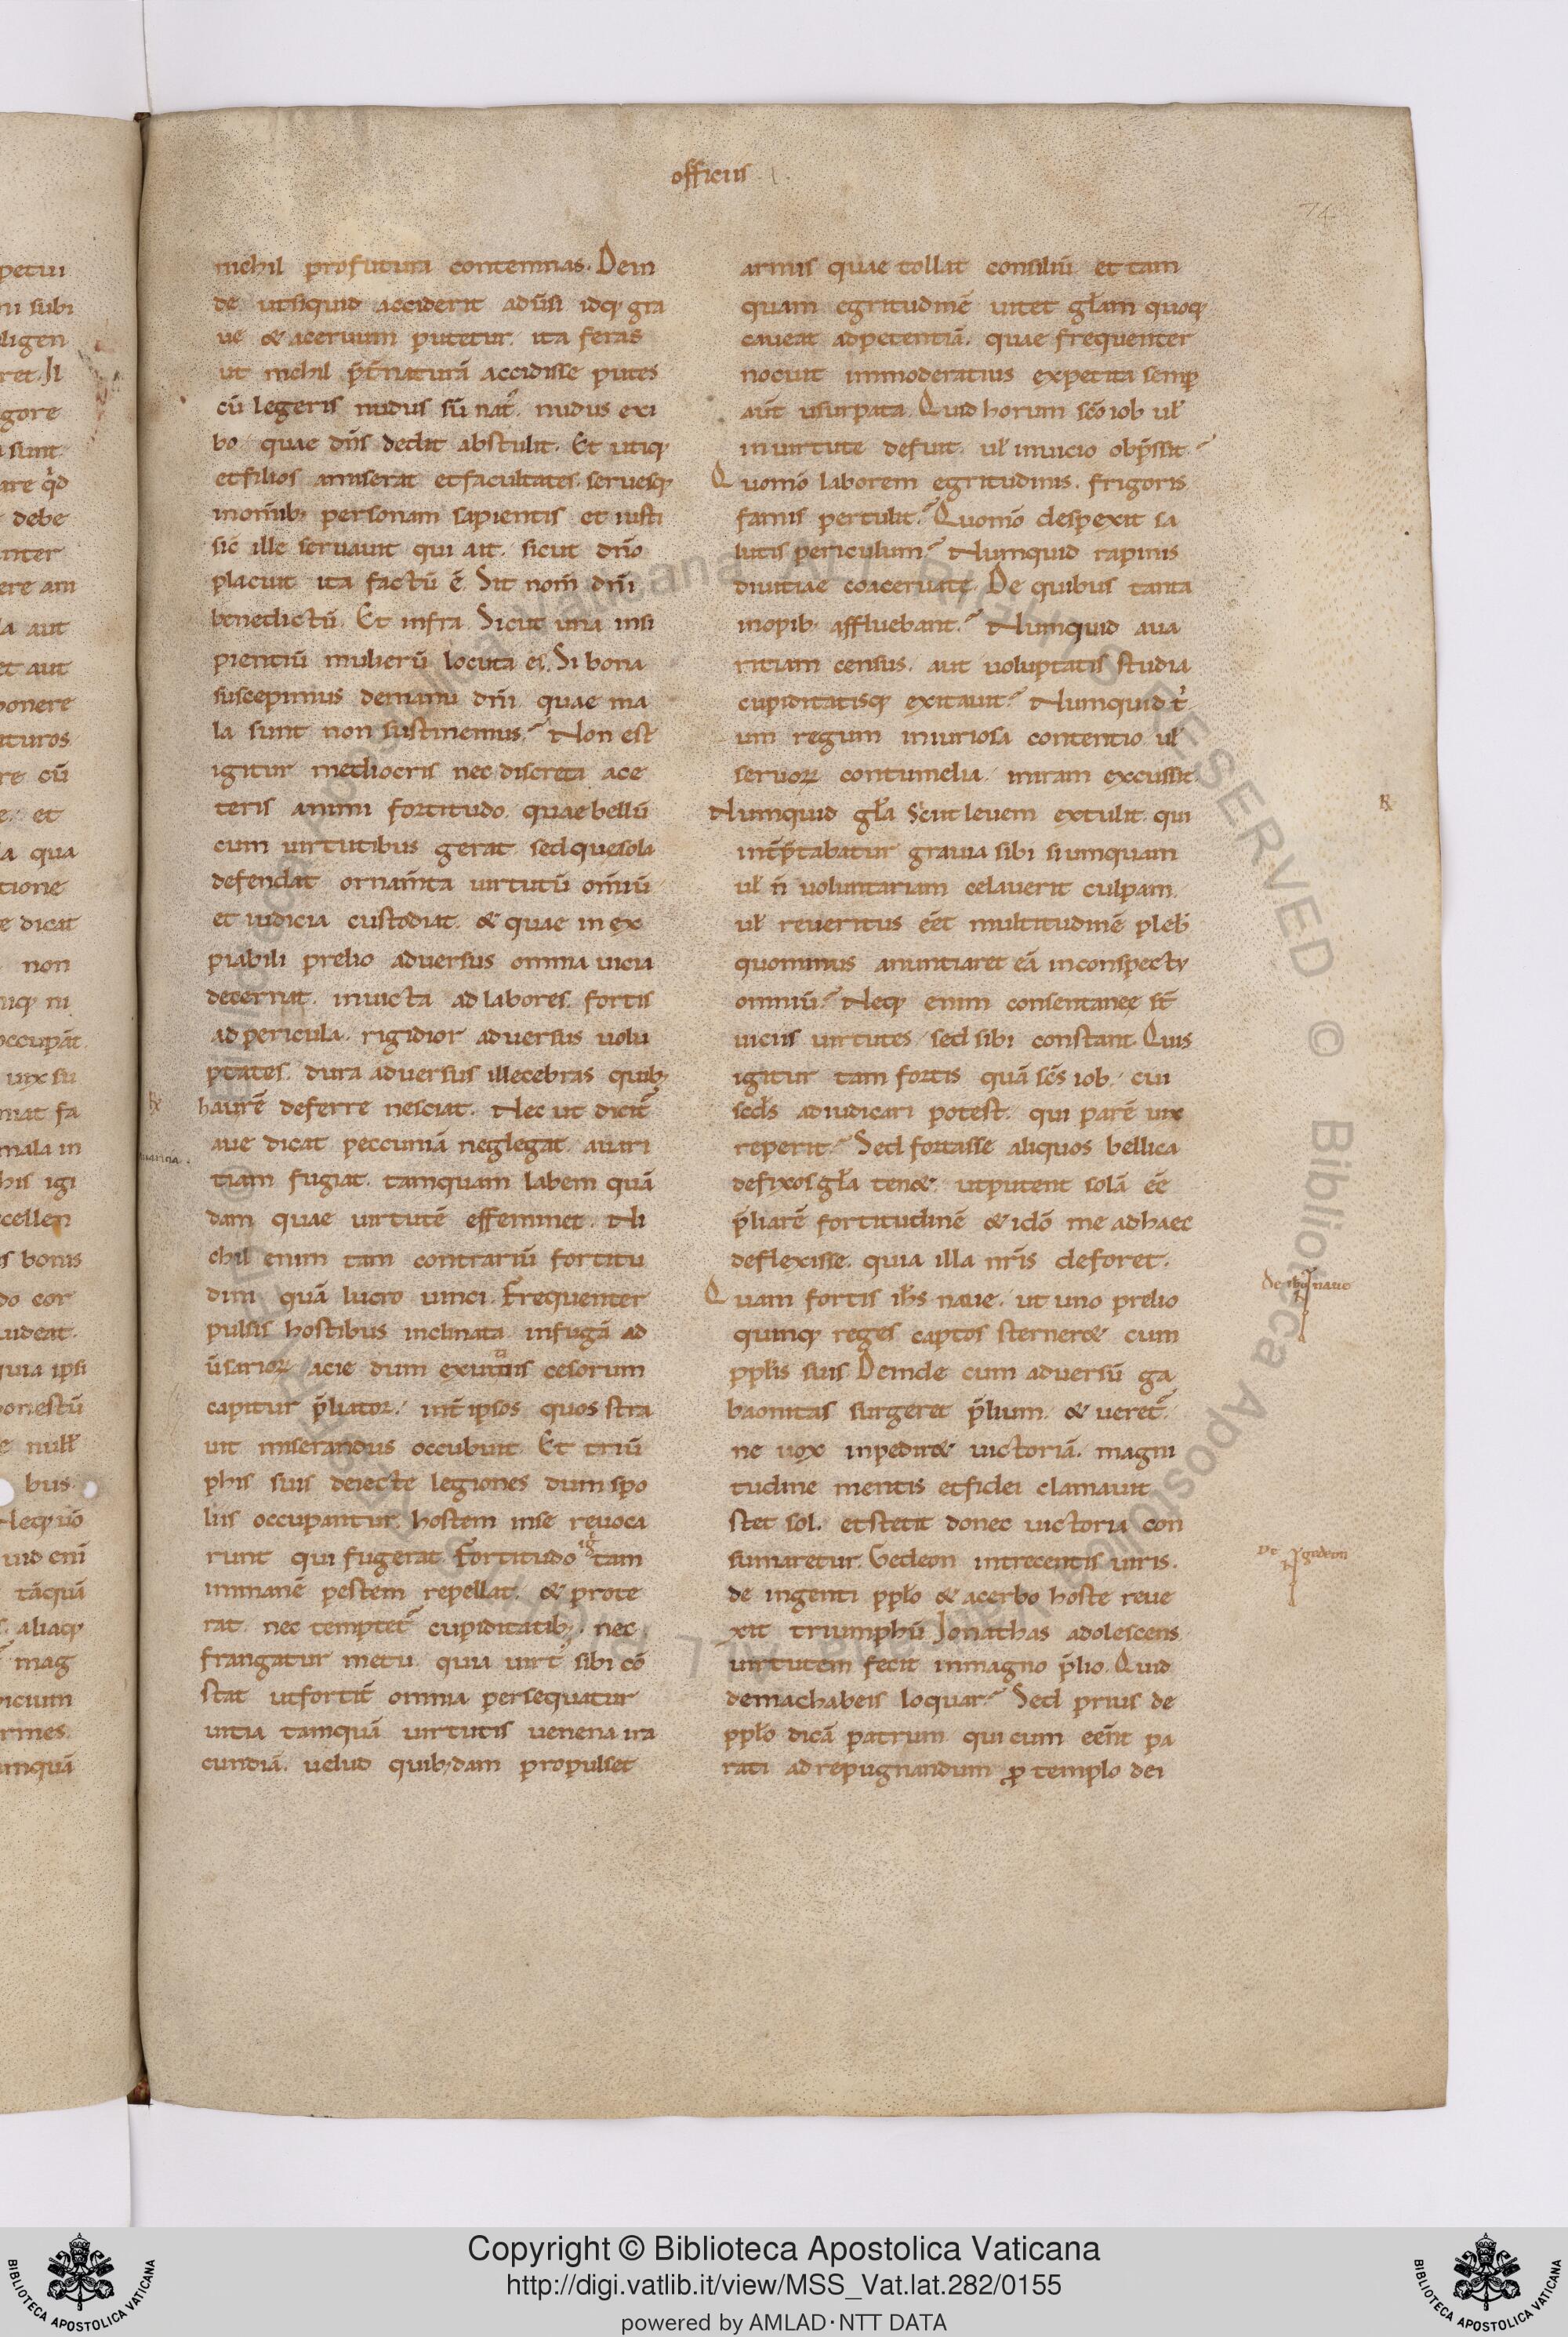 officiis
74
nichil profutura contemnas. Dein
de utsiquid acciderit adūsi idq; gra
ue & aceruum putetur. ita feras
ut nichil p̄t̄naturā accidisse putes
cū legeris nudus sū nat᷒. nudus exi
bo. quae dn̄s dedit abstulit. Et utiq;
etfilios amiserat etfacultates. seruesq;
inom̄ib; personam sapientis et iusti
sic ille seruauit qui ait. sicut dn̄o
placuit ita factū ē. Sit nom̄ dn̄i
benedictū. Et infra. Sicut una insi
pientiū mulierū locuta es. Si bona
suscepimus demanu dn̄i quae ma
la sunt non sustinemus? Non est
igitur mediocris nec discreta ace
teris animi fortitudo. quaebellū
cum uirtutibus gerat. sed quesola
defendat ornam̄ta uirtutū om̄iū
et iudicia custodiat. & quae in ex
piabili prelio aduersus omnia uicia
decernat. inuicta ad labores. fortis
ad pericula. rigidior aduersus uolu
ptates. dura aduersus illecebras quib;
haurē deferre nesciat. Nec ut dicit᷒
aue dicat peccuniā neglegat. auari
tiam fugiat. tamquam labem quā
dam quae uirtutē effeminet. Ni
chil enim tam contrariū fortitu
dini quā lucro uinci. Frequenter
pulsis hostibus inclinata infugā ad
ūsarioꝝ acie dum exuuiis cesorum
capitur p̄liator. int̄ ipsos quos stra
uit miserandus occubuit. Et triū
phis suis deiecte legiones dum spo
liis occupantur hostem inse reuoca
runt qui fugerat. Fortitudo igr̄ tam
inmanē pestem repellat. & prote
rat. nec temptet᷒ cupiditatib;. nec
frangatur metu. quia uirt᷒ sibi cō
stat utfortit̄ omnia persequatur
uitia tamquā uirtutis uenena ira
cundiā. uelud quib;dam propulset
armis quae tollat consiliū. et tam
quam egritudinē uitet. gl̄am quoq;
caueat adpetentiā. quae frequenter
nocuit immoderatius expetita semp̄
aūt usurpata. Quid horum sc̄o iob ul̄
inuirtute defuit. ul̄ inuicio obp̄ssit?
Quomō laborem egritudinis. frigoris
famis pertulit? Quomō despexit sa
lutis periculum? Numquid rapinis
diuitiae coaceruate. De quibus tanta
inopib; affluebant? Numquid aua
ritiam census. aut uoluptatis studia
cupiditatisq; exitauit? Numquid t᷒
um regum iniuriosa contentio ul̄
seruoꝝ contumelia. iniram excussit
Numquid gl̄a sicut leuem extulit. qui
int̄p̄tabatur grauia sibi siumquam
ul̄ n̄ uoluntariam celauerit culpam.
ul̄ reueritus eēt multitudinē pleb̄
quominus anuntiaret eā inconspectu
omniū? Neq; enim consentanee st̄
uiciis uirtutes. sed sibi constant. Quis
igitur tam fortis quā sc̄s iob. cui
scd̄s adiudicari potest. qui parē uix
reperit? Sed fortasse aliquos bellica
defixosgl̄a ten&. utputent solā eē
p̄liarē fortitudinē & idō me adhaec
deflexisse. quia illa nr̄is deforet.
Quam fortis ih̄s naue. ut uno prelio
quinq; reges captos sterner& cum
ppl̄is suis. Deinde cum aduersū ga
baonitas surgeret p̄lium. & ueret᷒
ne uox inpedir& uictoriā. magni
tudine mentis etfidei clamauit
stet sol. etstetit donec uictoria con
sumaretur. Gedeon intrecentis uiris.
de ingenti ppl̄o & acerbo hoste reue
xit triumphū. Jonathas adolescens
uirtutem fecit inmagno p̄lio. Quid
demachabeis loquar? Sed prius de
ppl̄o dicā patrum. qui cum eēnt pa
rati adrepugnandum ꝓ templo dei
Copyright © Biblioteca Apostolica Vaticana
http://digi.vatlib.it/view/MSS_Vat.lat.282/0155
powered by AMLAD·NTT DATA
BIBLIOTECA APOSTOLICA VATICANA
BIBLIOTECA APOSTOLICA VATICANA